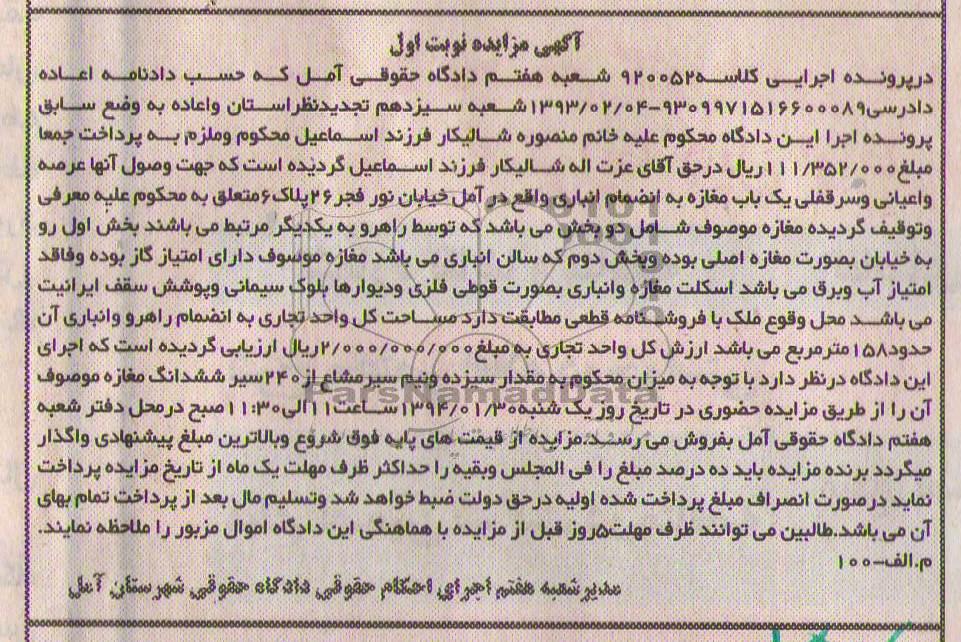 آگهی مزایده نوبت اول
درپرونده اجرایی کلاسه۹۲۰۰۵۲ شعبه هفتم دادگاه حقوقی آمل که حسب دادنامه اعاده
دادرسی۹۳۰۹۹۷۱۵۱۶۶۰۰۰۸۹-۱۳۹۳/۰۲/۰۴شعبه سیزدهم تجدیدنظراستان واعاده به وضع سابق
پرونده اجرا این دادگاه محکوم علیه خانم منصوره شالیکار فرزند اسماعیل محکوم وملزم به پرداخت جمعا
مبلغ۱۱۱/۳۵۲/۰۰۰ریال درحق آقای عزت اله شالیکار فرزند اسماعیل گردیده است که جهت وصول آنها عرصه
واعیانی وسرقفلی یک باب مغازه به انضمام انباری واقع در آمل خیابان نور فجر۲۶پلاک۶متعلق به محکوم علیه معرفی
وتوقیف گردیده مغازه موصوف شامل دو بخش می باشد که توسط راهرو به یکدیگر مرتبط می باشند بخش اول رو
به خیابان بصورت مغازه اصلی بوده وبخش دوم که سالن انباری می باشد مغازه موسوف دارای امتیاز گاز بوده وفاقد
امتیاز آب وبرق می باشد اسکلت مغازه وانباری بصورت قوطی فلزی ودیوارها بلوک سیمانی وپوشش سقف ایرانیت
می باشد محل وقوع ملک با فروشنامه قطعی مطابقت دارد مساحت کل واحد تجاری به انضمام راهرو وانباری آن
حدود۱۵۸مترمربع می باشد ارزش کل واحد تجاری به مبلغ۲/۰۰۰/۰۰۰/۰۰۰ریال ارزیابی گردیده است که اجرای
این دادگاه درنظر دارد با توجه به میزان محکوم به مقدار سیزده ونیم سیرمشاع از۲۴۰سیر ششدانگ مغازه موصوف
آن را از طریق مزایده حضوری در تاریخ روز یک شنبه۱۳۹۴/۰۱/۳۰ساعت۱۱الی۱۱:۳۰صبح درمحل دفتر شعبه
هفتم دادگاه حقوقی آمل بفروش می رسد.مزایده از قیمت های پایه فوق شروع وبالاترین مبلغ پیشنهادی واگذار
میگردد برنده مزایده باید ده درصد مبلغ را فی المجلس وبقیه را حداکثر ظرف مهلت یک ماه از تاریخ مزایده پرداخت
نماید درصورت انصراف مبلغ پرداخت شده اولیه درحق دولت ضبط خواهد شد وتسلیم مال بعد از پرداخت تمام بهای
آن می باشد.طالبین می توانند ظرف مهلت۵روز قبل از مزایده با هماهنگی این دادگاه اموال مزبور را ملاحظه نمایند.
م.الف-۱۰۰
مدیرشعبه هفتم اجرای احکام حقوقی دادگاه حقوقی شهرستان آمل
ParsNamadData